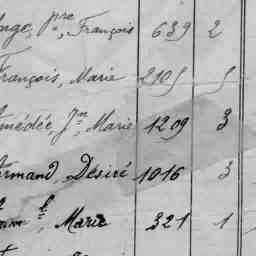 pre, François 639 2
François, Marie 2105 5
Amédée, Jn, Marie 1209 3
Armand, Désiré 1016 3
Marie 321 1